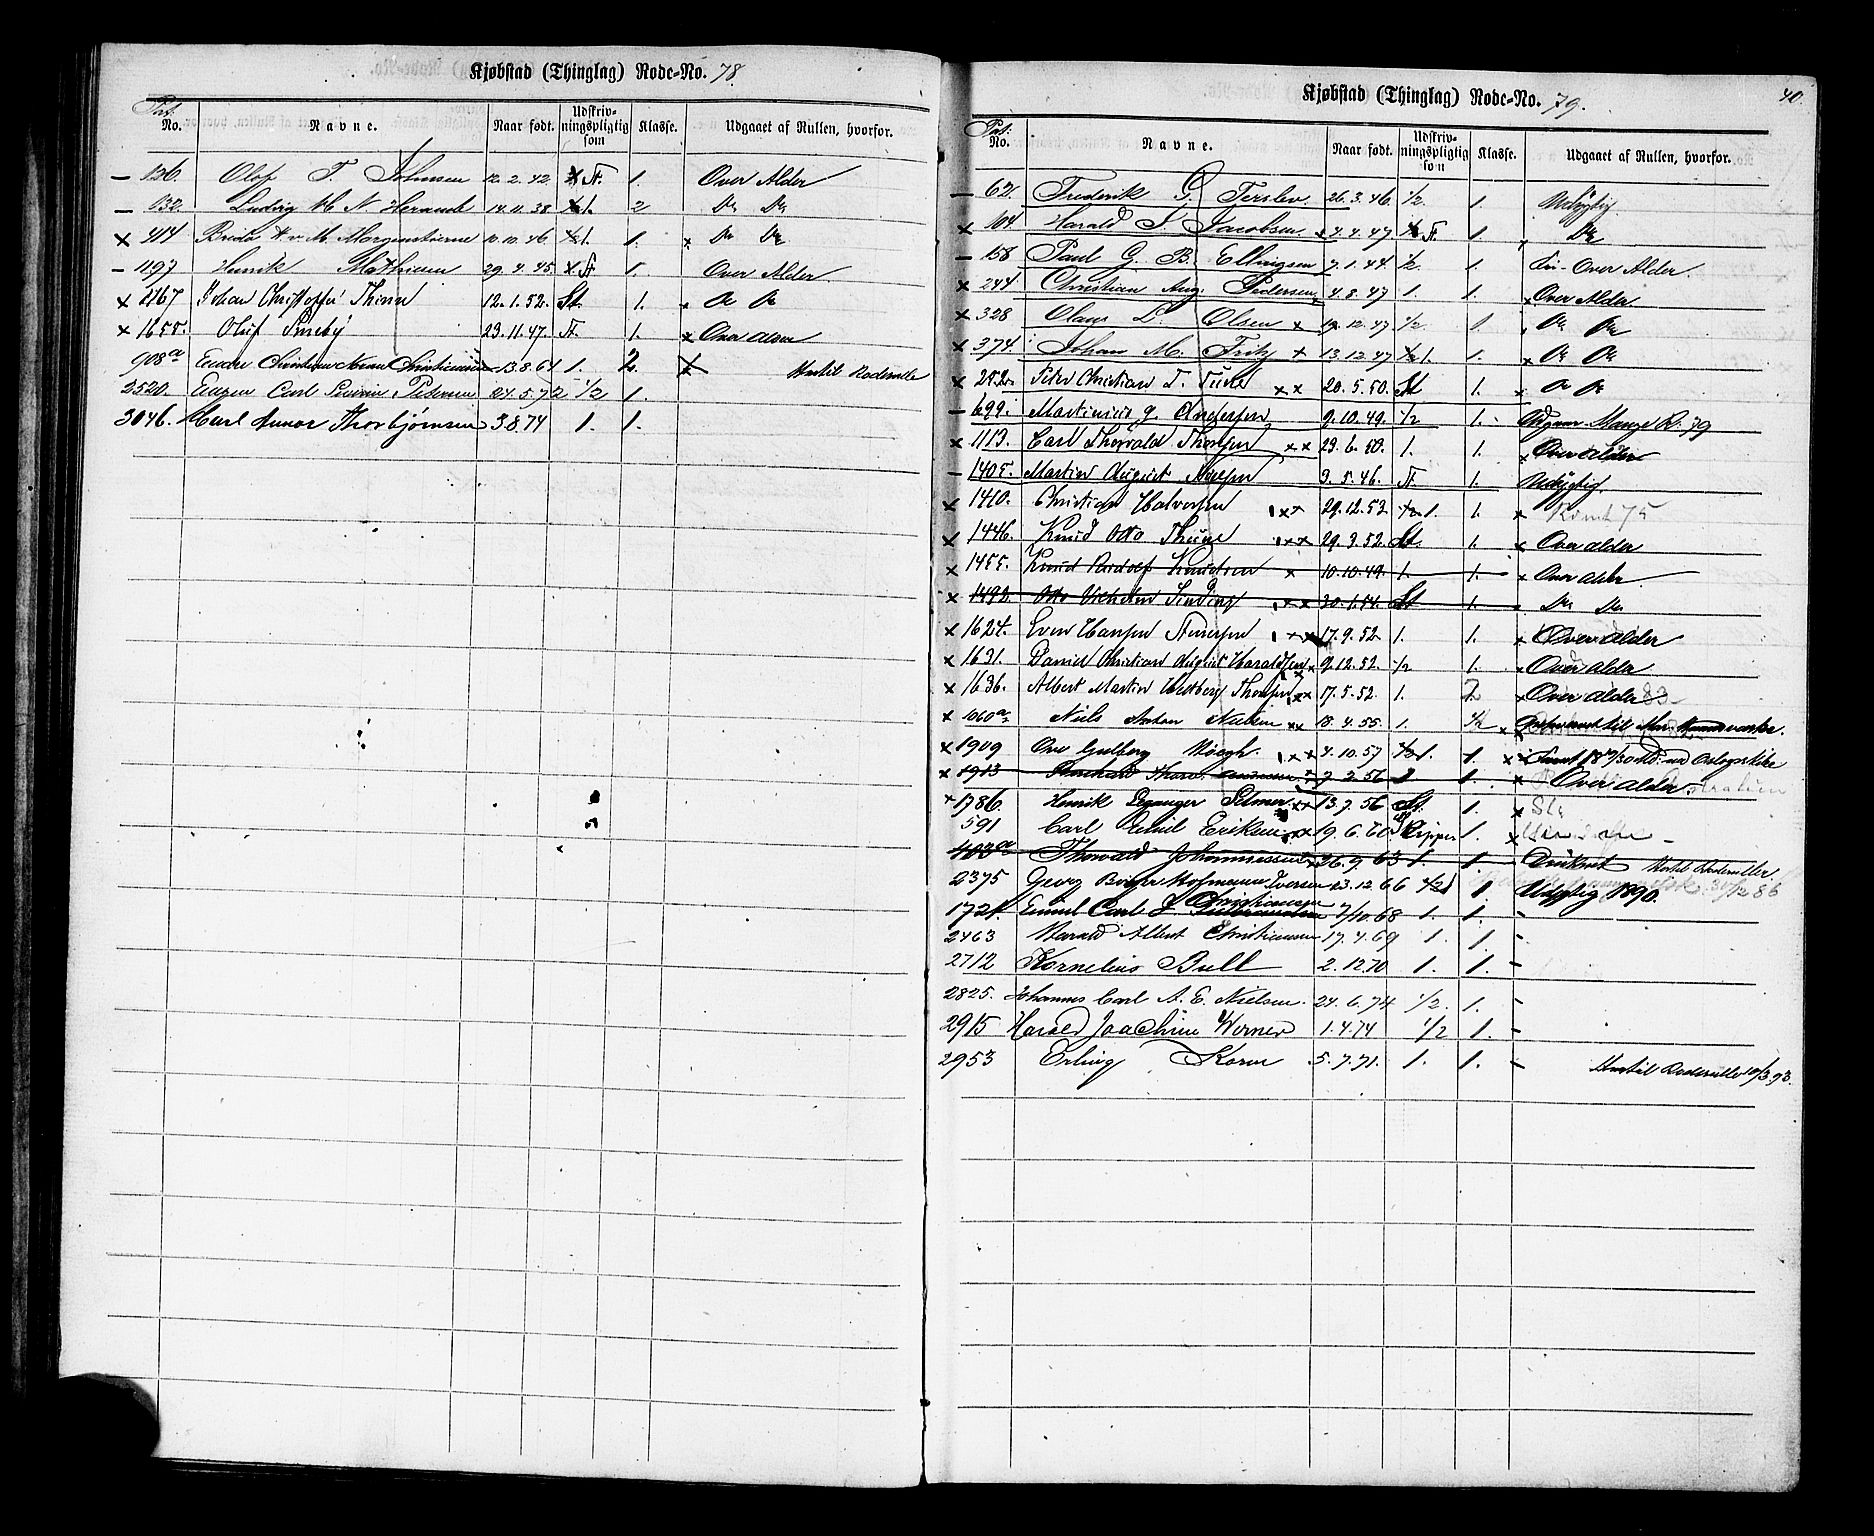 Kjøbstad (Thinglag) Rode-No. 78
Pat. No. Navne. Naar født. Udskriv-ningspligtig som Klasse. Udgaaet af Rullen, hvorfor.
— 136. Olaf T. Johnsen 12.2.42 St. 1. Over Alder
— 132. Ludvig M N. 14.11.38 1. 2 Do Do
x 414 M. Morgenstierne 10.10.46 1. 1. Do Do
— 1197 Henrik Mathiesen 29.4.45 St 1. Over Alder
x 1467 Johan Christopher Thinn 12.1.52. St. 1. Do Do
x 1655. Oluf 23.11.47. St. 1. x Over alder
908a Christian Christiansen 13.8.64 1. 2.
2520. Eugen Carl Severin Pedersen 24.5.72 1/2 1.
3046. Karl Thorbjørnsen 3.8.74 1. 1.
Kjøbstad (Thinglag) Rode-No. 79.
40.
Pat. No. Navne. Naar født. Udskriv-ningspligtig som Klasse. Udgaaet af Rullen, hvorfor.
— 62. Frederik G. Terslev. 26.3.46. 1/2. 1. Udygtig
x 104 Harald S. Jacobsen 4.4.47 St. 1. Do
— 158 Paul G. B. Ellingsen 7.1.44. 1/2. 1. Fri-Over Alder
x 244 Christian Aug. Pedersen 4.8.47 1. 1. x Over Alder
x 328 Olaus L. Olsen x 19.12.47 1/2 1. Do Do
x 374. Johan M. Fritz + 13.12.47 1. 1. x Do Do
x Peter Christian T. x x 20.5.50. St 1. x Do Do
— 699. Martinius G. Andersen 9.10.49. 1/2 1. R. 79
x 1113. Carl Thorvald Thorsen x x 23.6.50. 1. 1. x Over alder
— 1405. Martin August Nielsen 3.5.46. St. 1. Udygtig.
x 1410. Christian Halvorsen 29.12.52 1. 1. x 75
x 1446. Knud Otto Thune x x 29.3.52. St. 1. x Over alder
x 1455. Knud Rudolf Knudsen x 10.10.49. 1. 1. x Over alder
x 1492. Otto Vilhelm Sinding x x 30.1.54. St 1. x Do Do
x 1624. Even Hansen 17.9.52. 1. 1. x Over alder
x 1631. Daniel Christian August Haraldsen 9.12.52. 1/2 1. x Over alder
x 1636. Albert Martin Westberg Thorsen 17.5.52. 1. 2 x Over alder 83
x 1060a Niels Anton Nielsen x x 18.4.55. 1. 1/2 x til
x 1909 Ove Guldberg Høegh. x x 4.10.57 1. 1. x
x 1913 7.2.56 1 1. x Over alder.
x 1786. Henrik Geganger Selmer x x 13.7.56 St. 1. x
591 Carl Emil Eriksen 19.6.60 1. x
403a Thorvald Johannessen 26.9.63 1. 1. Druknet
2375 Georg Hofmann Iversen 23.12.66 1/2 1. Udygtig 1890. 31/12 86
1721. Emil Carl J. Christiansen 7/10.68 1. 1. —
2463 Harald Albert Christiansen 17.4.69 1. 1. —
2712 Kornelius Bull 2.12.70 1. 1. —
2825. Johannes Carl A. E. Nielsen. 24.6.74 1/2. 1. —
2915 Harald Joachim Werner 1.4.74 1/2 1. —
2953 Erling Korn 5.7.71. 1. 1. — 10/3.93.